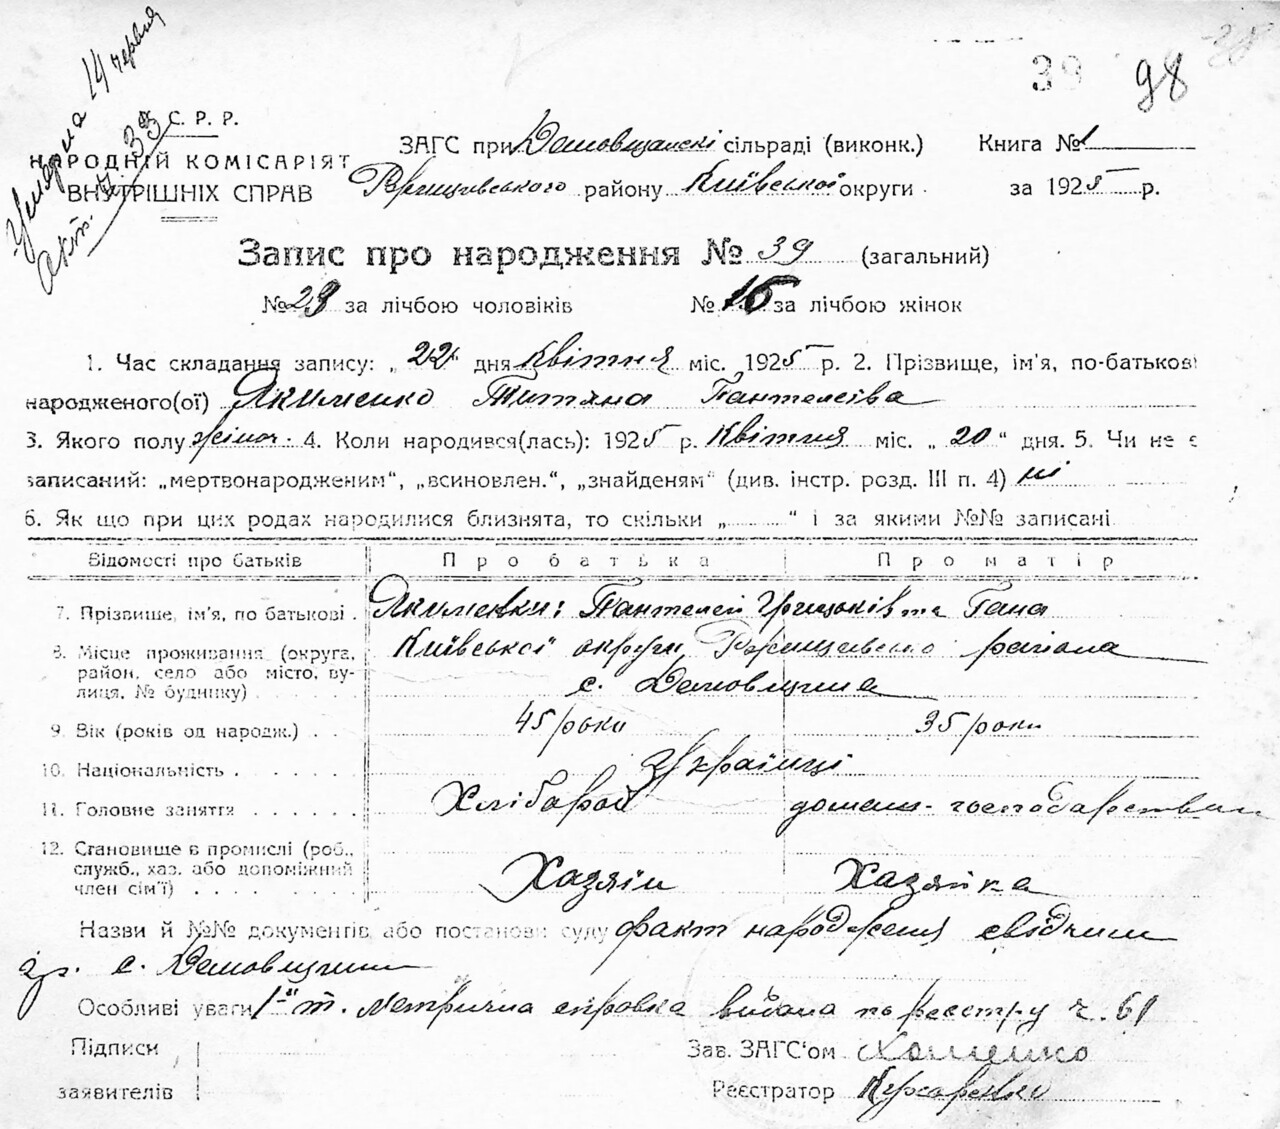 Умерла 14 червня
акт. № 33
39 98
С. Р. Р.
НАРОДНІЙ КОМІСАРІЯТ
ВНУТРІШНІХ СПРАВ
ЗАГС при Демовщанскі сільраді (виконк.) Книга № 1
Ржищевського району Київської округи за 1925 р.
Запис про народження № 39 (загальний)
№ 23 за лічбою чоловіків № 16 за лічбою жінок
1. Час складання запису: „22" дня Квітня міс. 1925 р. 2. Прізвище, ім'я, по-батькові
народженого(ої) Якименко Титяна Пантелеіва
3. Якого полу жіноч. 4. Коли народився(лась): 1925 р. Квітня міс. „20" дня. 5. Чи не є
записаний: „мертвонародженим", „всиновлен.", „знайденям" (див. інстр. розд. III п. 4) ні
6. Як що при цих родах народилися близнята, то скільки „ " і за якими №№ записані
Відомості про батьків Про батька Про матір
7. Прізвище, ім'я, по батькові . Якименки: Пантелей Грицьків та Гана
8. Місце проживання (округа, район, село або місто, вулиця, № будинку) Київської округи Ржищевсько района
с. Демовщина
9. Вік (років од народж.) . . 45 роки 35 роки
10. Національність Українці
11. Головне заняття Хлібороб домаш. господарством
12. Становище в промислі (роб., служб., хаз. або допоміжний член сім'ї) Хазяін Хазяйка
Назви й №№ документів або постанови суду факт народження свідчили
гр. с. Демовщини
Особливі уваги 1-ш т. Метрична справка видана по реестру ч. 61
Підписи Зав. ЗАГС'ом Хоменко
заявителів Реєстратор